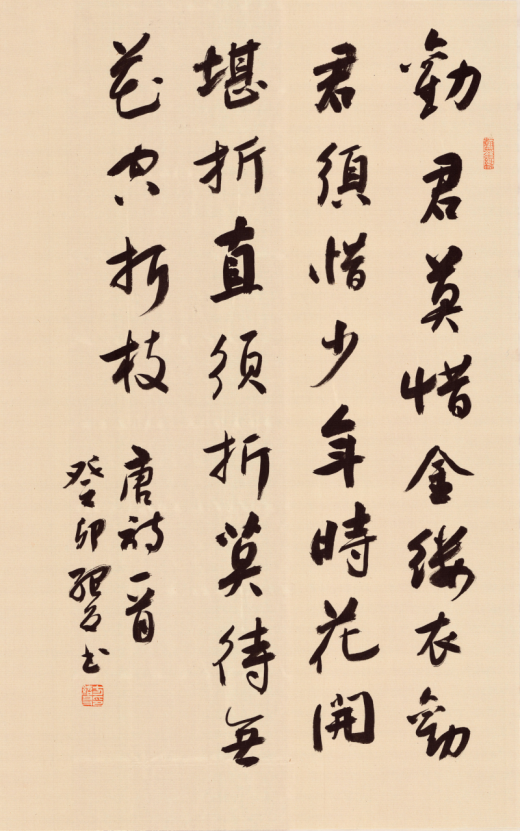 勸君莫惜金缕衣勸
君須惜少年時花開
堪折直须折莫待無
花空折枝
唐詩一首
癸卯
书